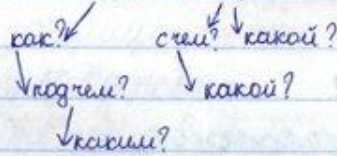 как? с чем? какой?
под чем? какой?
каким?